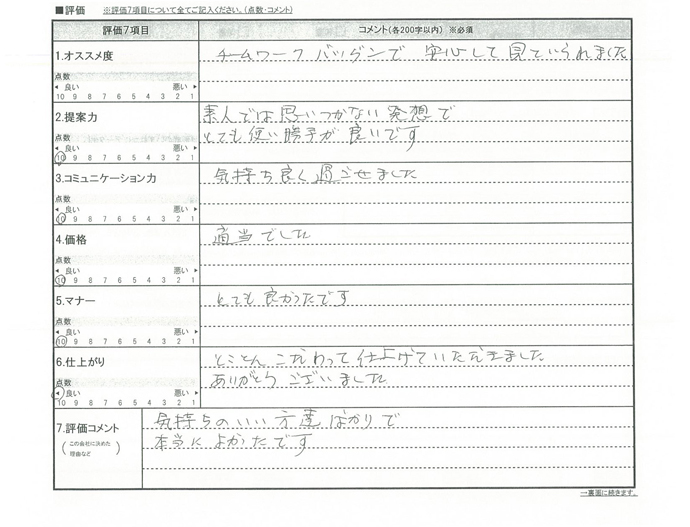 ■評価 ※評価7項目について全てご記入ください。（点数・コメント）
評価7項目 コメント（各200字以内） ※必須
1.オススメ度 チームワークバツグンで 安心して見ていられました
点数
良い 悪い
10 9 8 7 6 5 4 3 2 1
2.提案力 素人では思いつかない発想で
とても使い勝手が良いです
点数
良い 悪い
10 9 8 7 6 5 4 3 2 1
3.コミュニケーション力 気持ち良く過ごせました
点数
良い 悪い
10 9 8 7 6 5 4 3 2 1
4.価格 適当でした
点数
良い 悪い
10 9 8 7 6 5 4 3 2 1
5.マナー とても良かったです
点数
良い 悪い
10 9 8 7 6 5 4 3 2 1
6.仕上がり とことんこだわって仕上げていただきました
ありがとうございました
点数
良い 悪い
10 9 8 7 6 5 4 3 2 1
7.評価コメント 気持ちのいい方達ばかりで
（この会社に決めた理由など） 本当によかったです
→裏面に続きます。